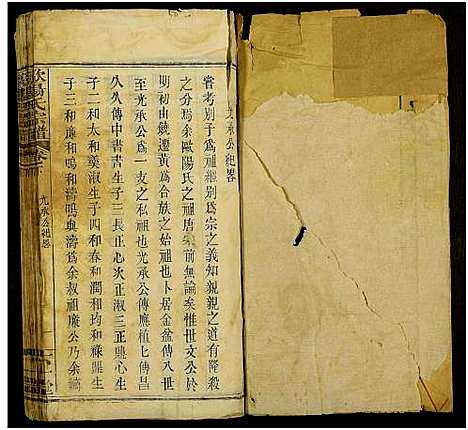 九承公紀畧
嘗考别子爲祖繼别爲宗之義知親親之道有隆殺
之分焉余歐陽氏之祖唐宗前無論矣惟世文公於
明初由饒遷黃爲合族之始祖也卜居金盆傳八世
至光承公爲一支之私祖也光承公傳應植七傳昌
久久傳中書書生子三長正心次正淑三正興心生
子二和太和奠淑生子四和春和潤和均和祿興生
子三和庫和鳴和濤鳴與濤爲余叔祖庫公乃余
歐陽氏宗譜
卷
九承公紀畧
堂